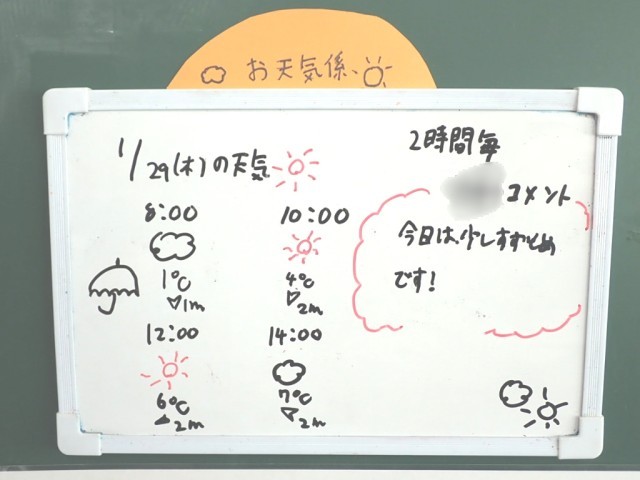 お天気係
1/29(木)の天気
2時間毎
コメント
今日は、少しすずしめ
です!
8:00
10:00
1℃
1m
4℃
2m
12:00
14:00
6℃
2m
7℃
2m